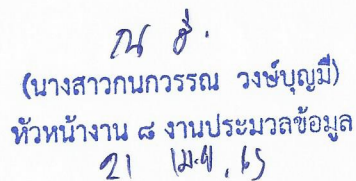 (นางสาวกนกวรรณ วงษ์บุญมี)
หัวหน้างาน ๘ งานประมวลข้อมูล
21 เม.ย. 65